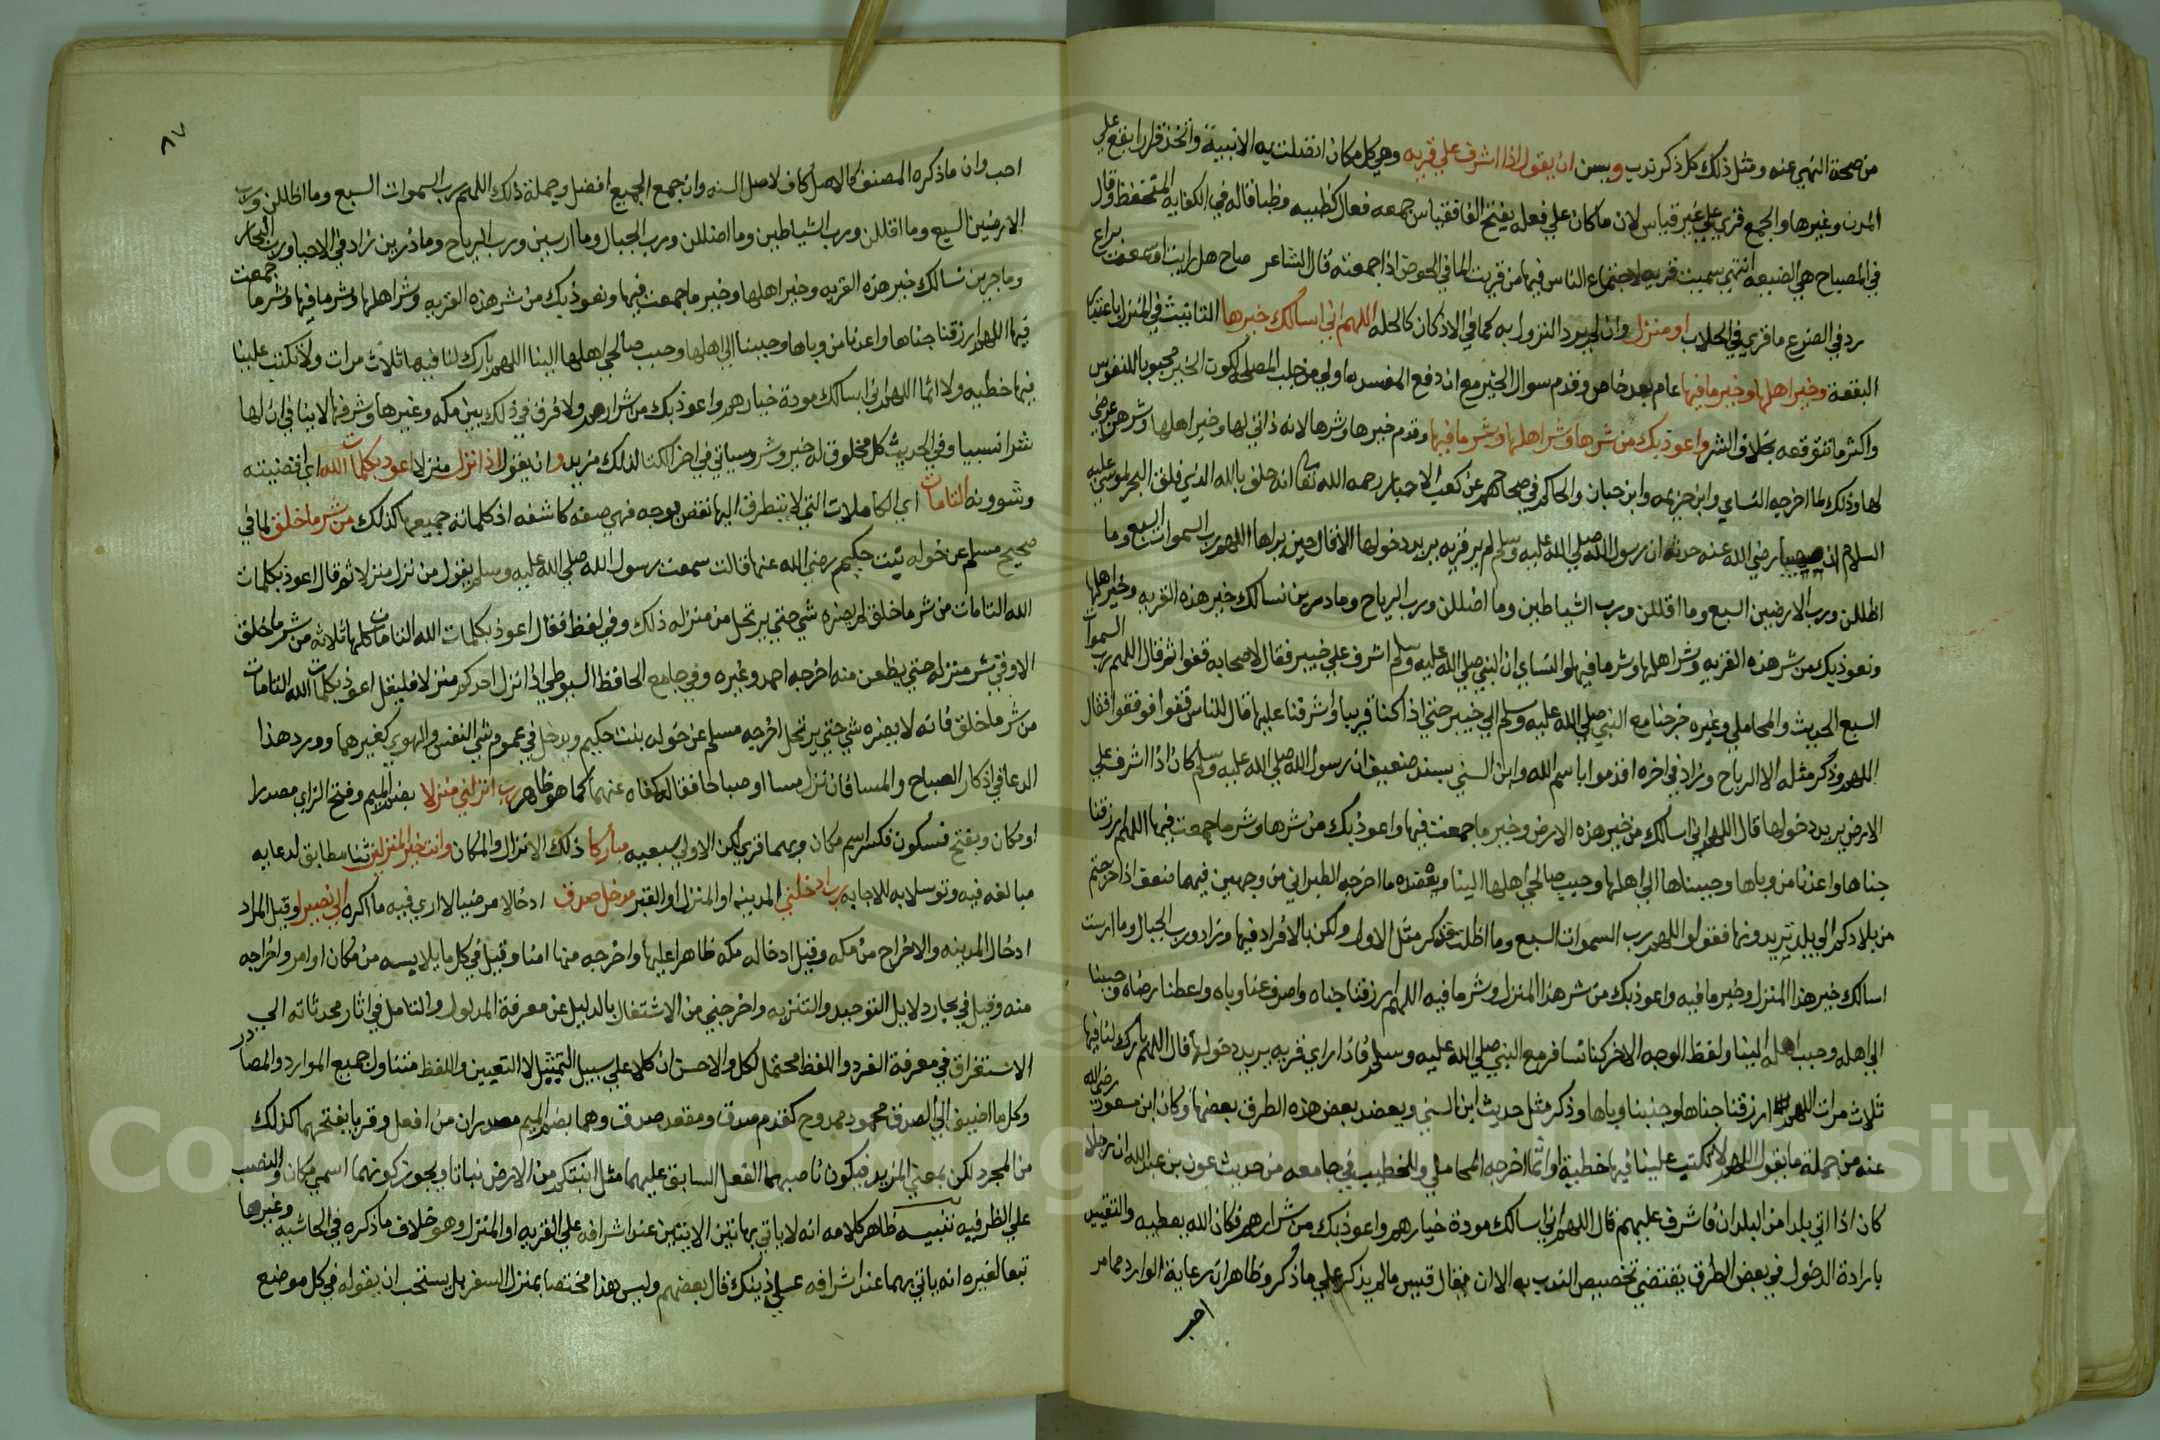 من صحة النهي عنه ومثل ذلك كل ذكر ندب ويسن ان يقول اذا اشرف علي قريه وهي كل مكان اتصلت به الابنية واتخذ قرارا يقع علي
المدن وغيرها والجمع قري علي غير قياس لان ما كان علي فعله بفتح الفا فقياس جمعه فعال كظبيه وظبا قاله في الكفايه المتحفظ وقال
في المصباح هي الضيعه انتهي سميت قريه لاجتماع الناس فيها من قريت الما في الحوض اذا جمعته قال الشاعر صاح هل رايت او سمعت براع
رد في الضرع ما قري في الحلاب او منزل وان لم يرد النزول به كما في الاذكار كالحله اللهم اني اسالك خيرها التانيث في المنزل باعتبار
البقعة وخير اهلها وخير ما فيها عام بعد خاص وقدم سوال الخير مع ان دفع المفسده اولي من جلب المصلحه لكون الخير محبوبا للنفوس
واكثر ما تتوقعه بخلاف الشر واعوذ بك من شرها وشر اهلها وشر ما فيها وقدم خيرها وشرها لانه ذاتي لها وخير اهلها وشرهم عرضي
لها وذلك لما اخرجه النساي وابن خزيمه وابن حبان والحاكم في صحاحهم عن كعب الاحبار رحمه الله تعا انه حلف بالله الذي فلق البحر لموسي عليه
السلام ان صهيبا رضي الله عنه حدثه ان رسول الله صلي الله عليه وسلم لم ير قريه يريد دخولها الا قال حين يراها اللهم رب السموات السبع وما
اظللن ورب الارضين السبع وما اقللن ورب الشياطين وما اضللن ورب الرياح وما ذرين نسالك خير هذه القريه وخير اهلها
ونعوذ بك من شر هذه القريه وشر اهلها وشر ما فيها وللنساي ان النبي صلي الله عليه وسلم اشرف علي خيبر فقال لاصحابه قفوا ثم قال اللهم رب السموات
السبع الحديث والمحاملي وغيره خرجنا مع النبي صلي الله عليه وسلم الي خيبر حتي اذا كنا قريبا واشرفنا عليها قال للناس قفوا فوقفوا فقال
اللهم وذكر مثله الا الرياح وزاد في اخره اقدموا باسم الله وابن السني بسند ضعيف ان رسول الله صلي الله عليه وسلم كان اذا اشرف علي
الارض يريد دخولها قال اللهم اني اسالك من خير هذه الارض وخير ما جمعت فيها واعوذ بك من شرها وشر ما جمعت فيها اللهم ارزقنا
جناها واعذنا من وباها وحببنا الي اهلها وحبب صالحي اهلها الينا ويعضده ما اخرجه الطبراني من وجهين فيهما ضعف اذا خرجتم
من بلادكم الي بلد تريدونها فقولوا اللهم رب السموات السبع وما اظلت فذكر مثل الاول ولكن بالافراد فيها وزاد ورب الجبال وما ارست
اسالك خير هذا المنزل وخير ما فيه واعوذ بك من شر هذا المنزل وشر ما فيه اللهم ارزقنا جناه واصرف عنا وباه واعطنا رضاه وحببنا
الي اهله وحبب اهله الينا ولفظ الوجه الاخر كنا نسافر مع النبي صلي الله عليه وسلم فاذا راي قريه يريد دخولها قال اللهم بارك لنا فيها
ثلاث مرات اللهم ارزقنا جناها وجنبنا وباها وذكر مثل حديث ابن السني ويعضد بعض هذه الطرق بعضها وكان ابن مسعود رضي الله
عنه من جملة ما يقول اللهم لا تكتب علينا فيها خطية ولا اثما اخرجه المحاملي وللخطيب في جامعه من حديث عون بن عبد الله ان رجلا
كان اذا اتي بلدا من البلدان فاشرف عليهم قال اللهم اني اسالك مودة خيارهم واعوذ بك من شرارهم فكان الله يعطيه والتقييد
بارادة الدخول في بعض الطرق يقتضي تخصيص الندب به الا ان يقال قيس ما لم يذكر علي ما ذكر وظاهر ان رعاية الوارد مما مر
احب
٨٧
احب وان ما ذكره المصنف كالاصل كاف لاصل السنه وان جمع الجميع افضل وجملة ذلك اللهم رب السموات السبع وما اظللن ورب
الارضين السبع وما اقللن ورب الشياطين وما اضللن ورب الجبال وما ارسين ورب الرياح وما ذرين زاد في الاحيا ورب البحار
وما جرين نسالك خير هذه القريه وخير اهلها وخير ما جمعت فيها ونعوذ بك من شر هذه القريه وشر اهلها وشر ما فيها وشر ما جمعت
فيها اللهم ارزقنا جناها واعذنا من وباها وحببنا الي اهلها وحبب صالحي اهلها الينا اللهم بارك لنا فيها ثلاث مرات ولا تكتب علينا
فيها خطيه ولا اثما اللهم اني اسالك مودة خيارهم واعوذ بك من شرارهم ولا فرق في ذلك بين مكه وغيرها وشرفها لا ينافي ان لها
شرا نسبيا وفي الحديث كل مخلوق له خير وشر وسياتي في اخر الكتا لذلك مزيد وان يقول اذا نزل منزلا اعوذ بكلمات الله اي اقضيته
وشوونه التامات اي الكاملات التي لا يتطرق اليها نقص بوجه فهي صفه كاشفه اذ كلماته جميعها كذلك من شر ما خلق لما في
صحيح مسلم عن خوله بنت حكيم رضي الله عنها قالت سمعت رسول الله صلي الله عليه وسلم يقول من نزل منزلا ثم قال اعوذ بكلمات
الله التامات من شر ما خلق لم يضره شي حتي يرتحل من منزله ذلك وفي لفظ فقال اعوذ بكلمات الله التامات كلها ثلاثه من شر ما خلق
الا وقي شر منزله حتي يظعن منه اخرجه احمد وغيره وفي جامع الحافظ السيوطي اذا نزل احدكم منزلا فليقل اعوذ بكلمات الله التامات
من شر ما خلق فانه لا يضره شي حتي يرتحل اخرجه مسلم عن خوله بنت حكيم ويدخل في عموم شي النفس والهوي كغيرهما وورد هذا
الدعا في اذكار الصباح والمسا فان نزل مسا او صباحا فقاله كفاه عنهما كما هو ظاهر رب انزلني منزلا بضم الميم وفتح الزاي مصدرا
او مكان وبفتح فسكون فكسر اسم مكان وبهما قري لكن الاولي سبعيه مباركا ذلك الانزال والمكان وانت خير المنزلين ثنا مطابق لدعايه
مبالغه فيه وتوسلا به للاجابه رب ادخلني المدينه او المنزل او القبر مدخل صدق ادخالا مرضيا لا اري فيه ما اكره الي نصيرا وقيل المراد
ادخال المدينه والاخراج من مكه وقيل ادخاله مكه ظاهرا عليها واخرجه منها امنا وقيل في كل ما يلابسه من مكان او امر واخراجه
منه وقيل في بحار دلايل التوحيد والتنزيه واخرجني من الاشتغال بالدليل عن معرفة المدلول والتامل في اثار محدثاته الي
الاستغراق في معرفة الفرد واللفظ محتمل لكل والاحسن ان كلا علي سبيل التمثيل لا التعيين واللفظ متناول جميع الموارد والمصادر
وكل ما اضيف الي الصدق محمود ممدوح كقدم صدق ومقعد صدق وهما بضم الميم مصدران من افعل وقريا بفتحهما كذلك
من المجرد لكن بمعني المزيد فيكون ناصبهما الفعل السابق عليهما مثل انبتكم من الارض نباتا ويجوز كونهما اسمي مكان والنصب
علي الظرفيه تنبيه ظاهر كلامه انه لا ياتي بهاتين الايتين عند اشرافه علي القريه او المنزل وهو خلاف ما ذكره في الحاشيه وغيرها
تبعا لغيره انه ياتي بهما عند اشرافه علي ذينك قال بعضهم وليس هذا مختصا بمنزل السفر بل يستحب ان يقوله في كل موضع
Copyright © King Saud University